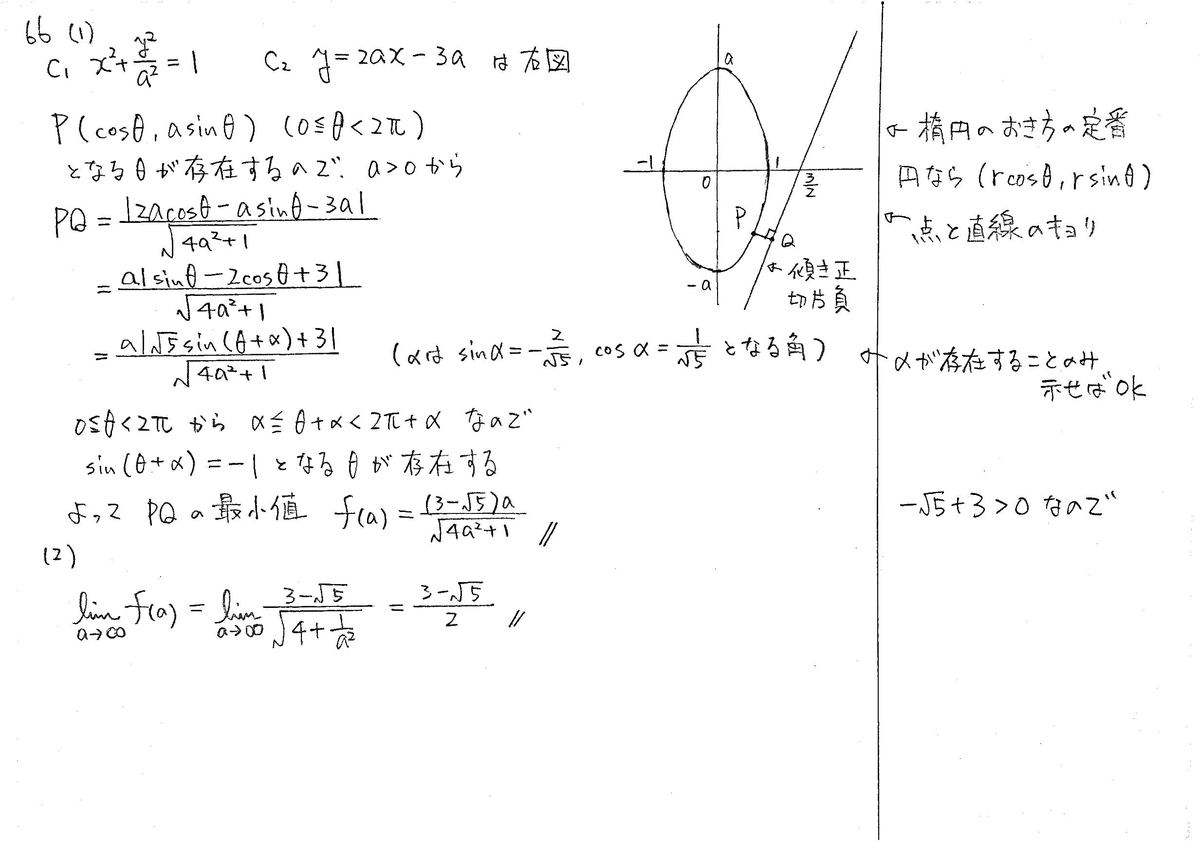 66 (1)
C₁ x²+y²/a²=1 C₂ y=2ax-3a は右図
P(cosθ, asinθ) (0≦θ<2π)
となるθが存在するので、a>0から
PQ = |2acosθ-asinθ-3a|/√(4a²+1)
= a|sinθ-2cosθ+3|/√(4a²+1)
= a|√5sin(θ+α)+3|/√(4a²+1) (αは sinα=-2/√5, cosα=1/√5 となる角)
0≦θ<2π から α≦θ+α<2π+α なので
sin(θ+α)=-1となるθが存在する
よって PQの最小値 f(a)=(3-√5)a/√(4a²+1) //
(2)
lim a→∞ f(a) = lim a→∞ (3-√5)/√(4+1/a²) = (3-√5)/2 //
a
-1
0
1
3/2
P
Q
-a
←傾き正
切片負
←楕円のおき方の定番
円なら(rcosθ, rsinθ)
←点と直線のキョリ
←αが存在することのみ
示せばOK
-√5+3>0 なので